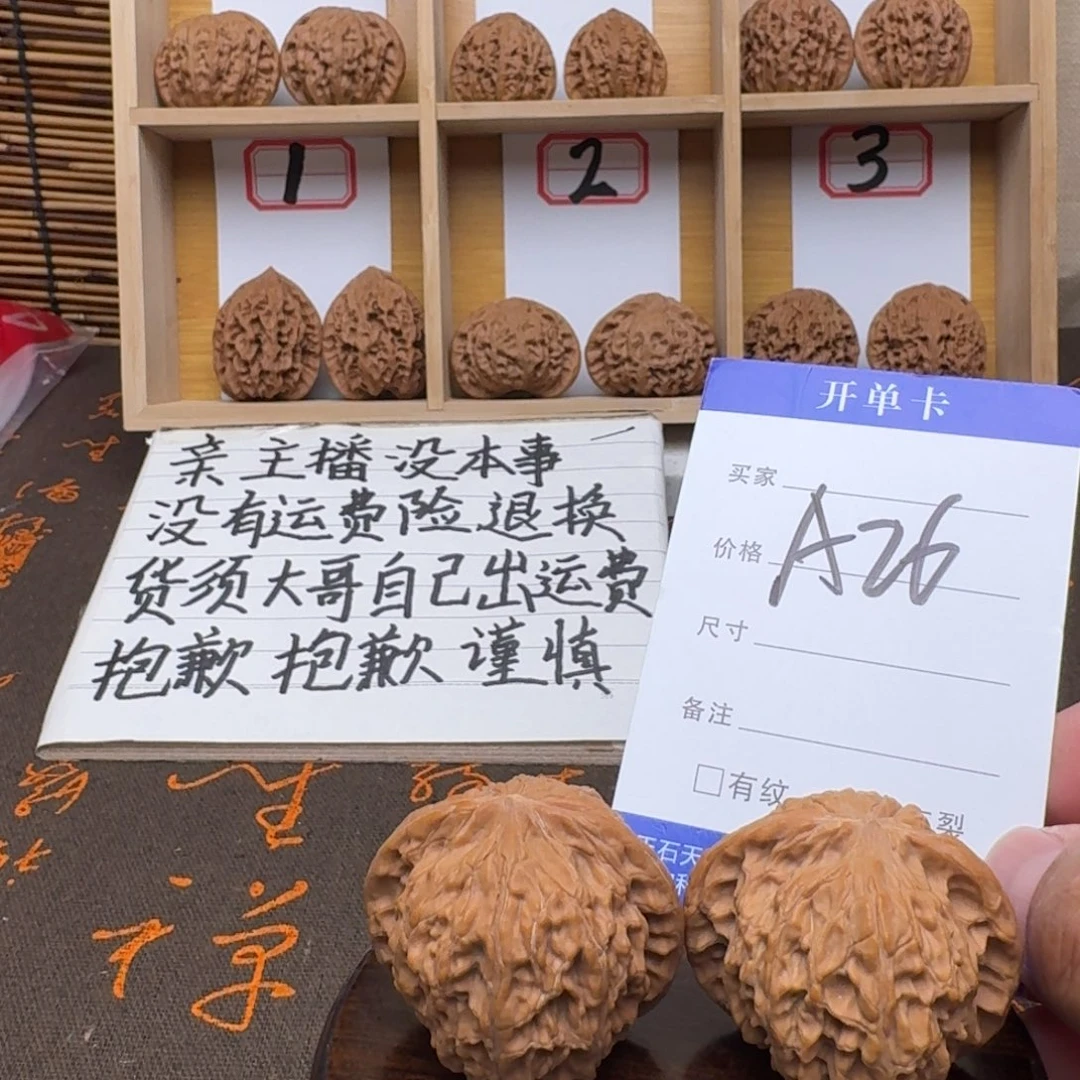 1
2
3
亲主播没本事
没有运费险退换
货须大哥自己出运费
抱歉抱歉谨慎
开单卡
买家
价格 A26
尺寸
备注
□有纹
裂
石天